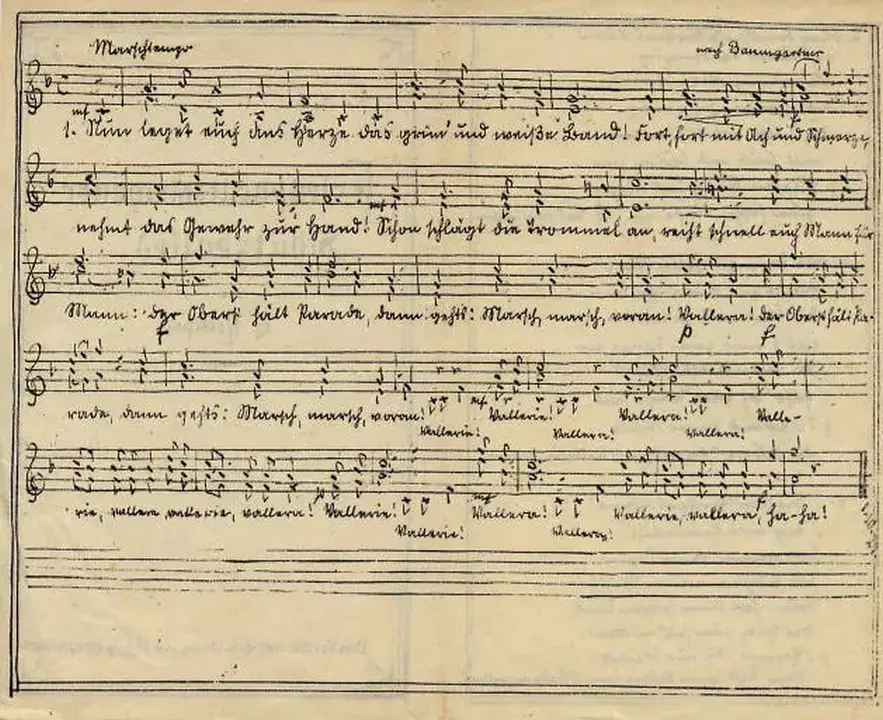 Marschtempo
nach Baumgartner
mf
1. Nun leget euch ans Herze das grün' und weiße Band! Fort, fort mit Ach und Schmerze,
mf
nehmt das Gewehr zur Hand! Schon schlägt die Trommel an, reiht schnell euch Mann für
Mann: der Oberst hält Parade, dann gehts: Marsch, marsch, voran! Vallera! der Oberst hält Pa-
f p f
rade, dann gehts: Marsch, marsch, voran! Vallerie! Vallera! Valle-
mf
Vallerie! Vallera! Vallera!
rie, vallera vallerie, vallera! Vallerie! Vallera! Vallerie, vallera, ha-ha!
p mf f
Vallerie! Vallera!